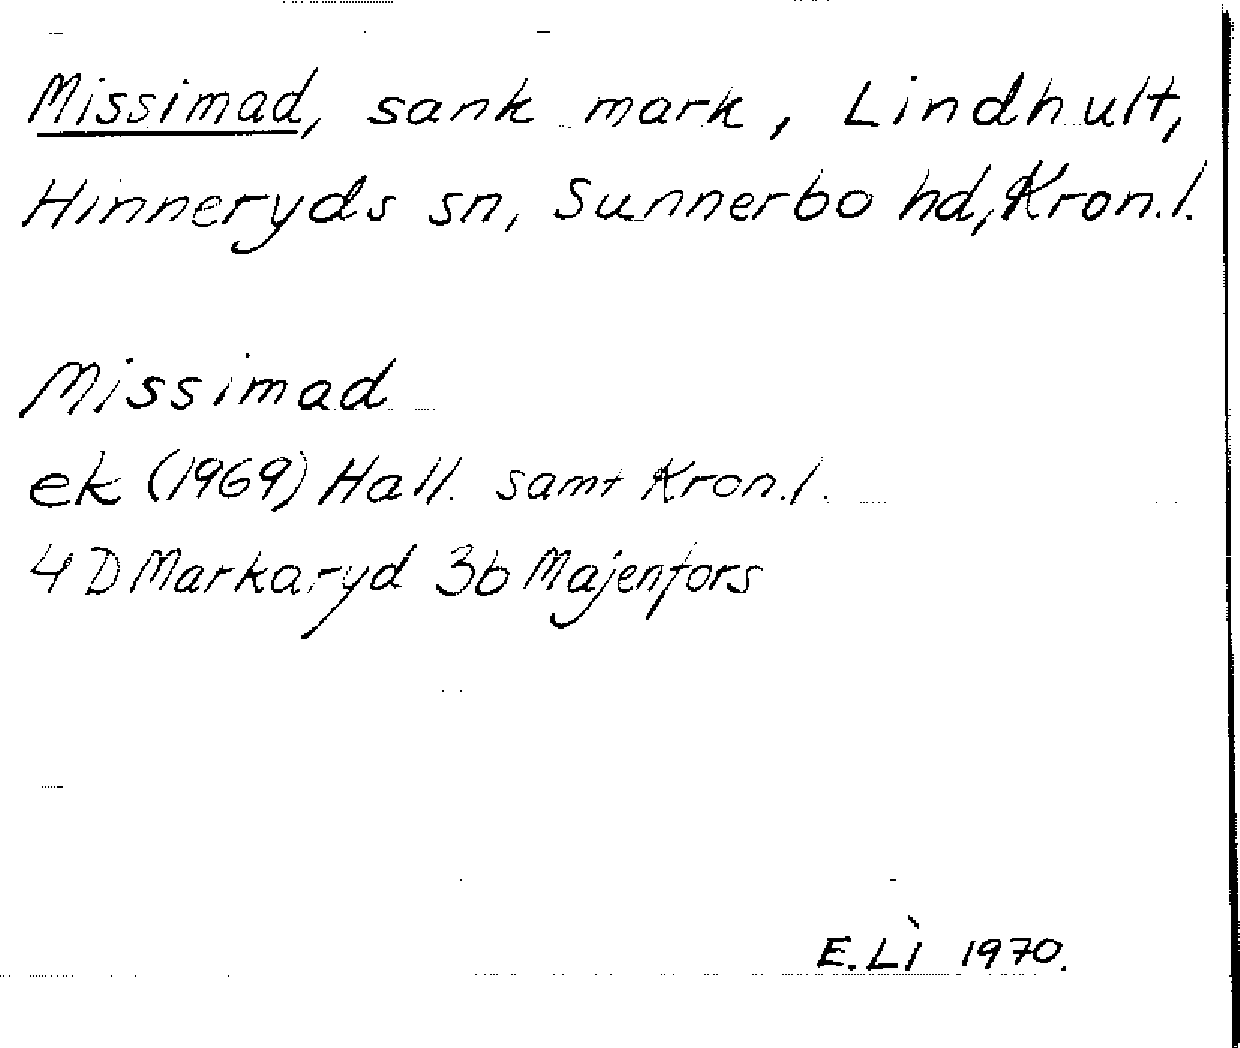 Missimad, sank mark, Lindhult,
Hinneryds sn, Sunnerbo hd, Kron.l.
Missimad
ek (1969) Hall. samt Kron.l.
4 D Markaryd 3b Majenfors
E. Li 1970.